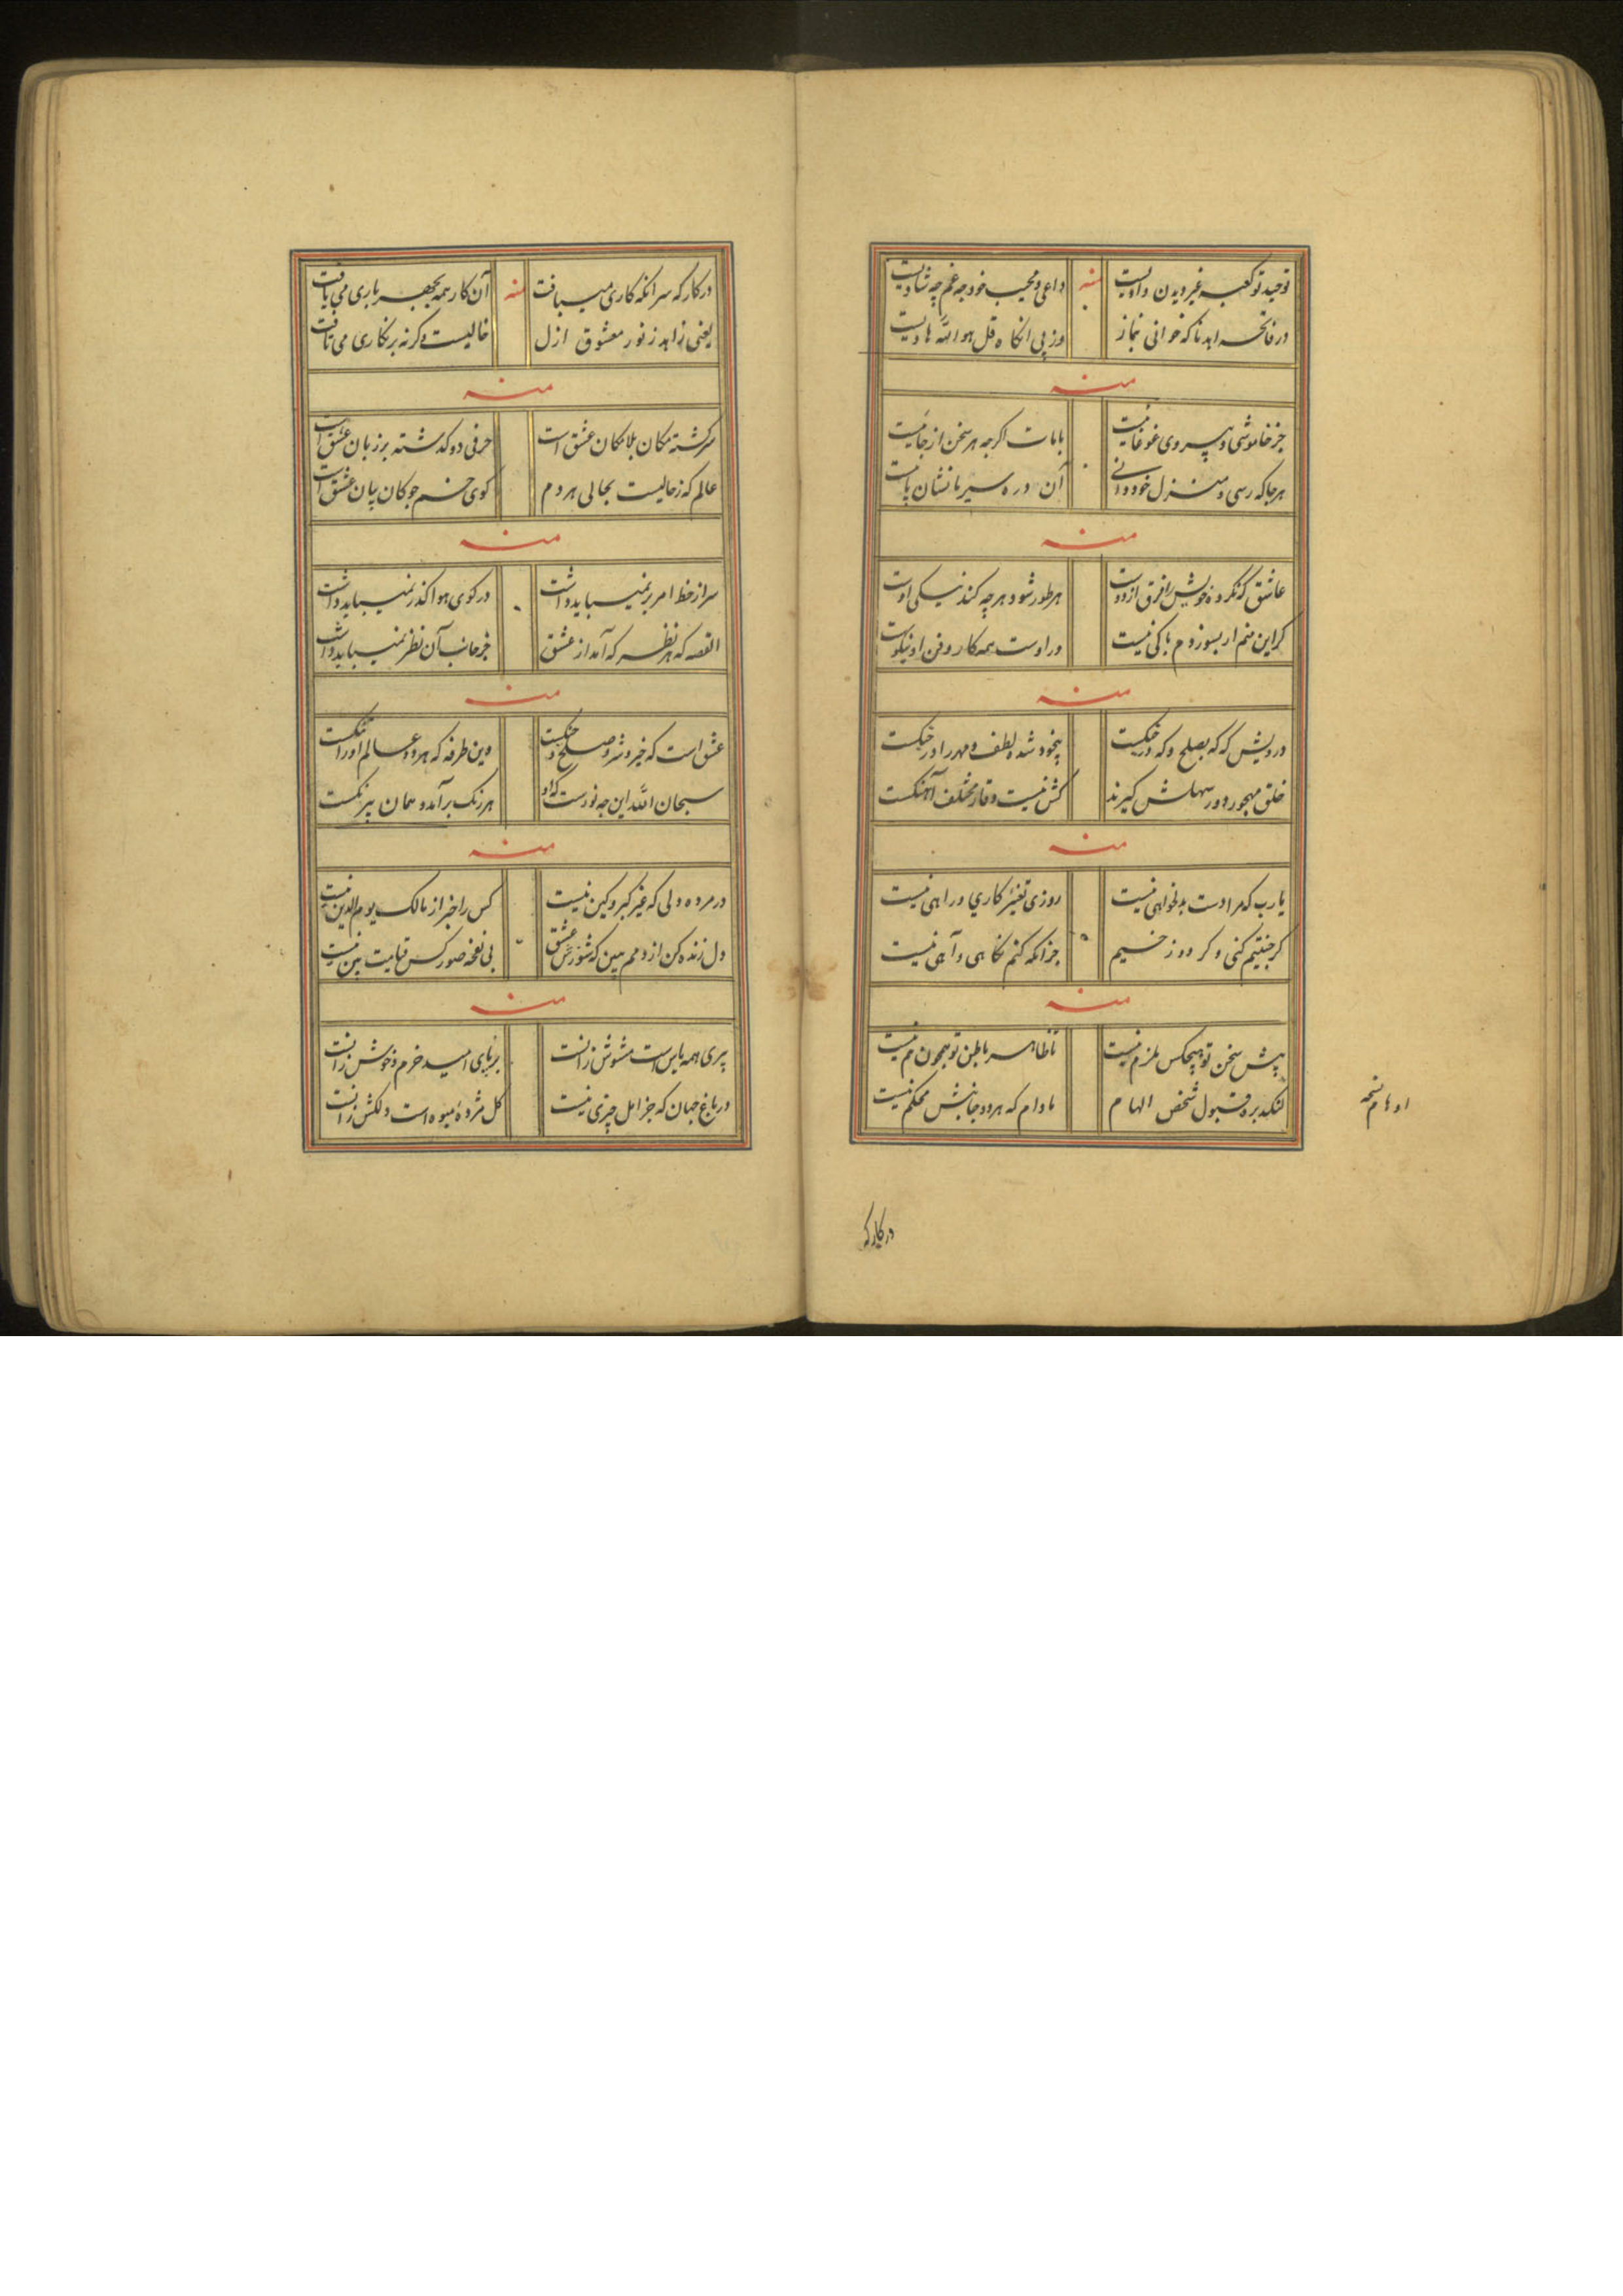 توحید تو کعبه غیر دیدن وادیست داعی و مجیب خود چه غم چه شادیست
منه
در فاتحه اهدنا که خوانی نماز وز پی انکاه قل هو الله هادیست
منه
جز خاموشی و پیروی غوغا نیست بامات اکرچه هر سخن از جا نیست
هرجا که رسی و منزل خود دانی آن در ره سیر ما نشان پاست
منه
عاشق که نکرده خویش را فرق از دوست هر طور شود هرچه کند نیکی اوست
کر این منم ار بسوزدم باکی نیست ور اوست همه کار و فن او نیکوست
منه
درویش که که بصلح و که در جنکست بیخود شده لطف و مهر را در جنکست
خلق مهجور و در سهلش کیرند کش نیست وقار مختلف آهنکست
منه
یارب که مرا دست بدلخواهی نیست روزی تغیر کاری و راهی نیست
کر جنتیم کنی و کر دوزخیم جز آنکه کنم نکاهی و آهی نیست
منه
پیش سخن تو هیچکس ملزم نیست تا ظاهر و باطن تو همچون هم نیست
لنکد بره قبول شخص الهام مادام که هر دو جانبش محکم نیست
اوهام نسخه
در کارکه
در کارکه سر آنکه کاری میبافت آن کار همه بجهر باری می یافت
منه
یعنی زاهد ز نور معشوق ازل خالیست و کرنه بر نکاری می تافت
منه
سرکشته مکان بلامکان عشق است حرفی دو کذشته بر زبان عشق است
عالم که ز حالیست بحالی هر دم کوی خم چوکان بیان عشق است
منه
سر از خط امر بر نمیباید داشت در کوی هوا کذر نمیباید داشت
القصه که هر نظر که آمد از عشق جز جانب آن نظر نمیباید داشت
منه
عشق است که خیر و شر و صلح و جنکست وین طرفه که هر دو عالم او را ننکست
سبحان الله این چه نورست که او هر رنک برآمد و همان بیرنکست
منه
در مرده دلی که غیر کبر و کین نیست کس را خبر از مالک یوم الدین نیست
دل زنده کن از دمم ببین کز شورش عشق بی نفخه صور کس قیامت بین نیست
منه
پیری همه یاس است مشوش زانست برنای امید خرم و خوش زانست
در باغ جهان که جز امل چیزی نیست کل مژده میوه است دلکش زانست